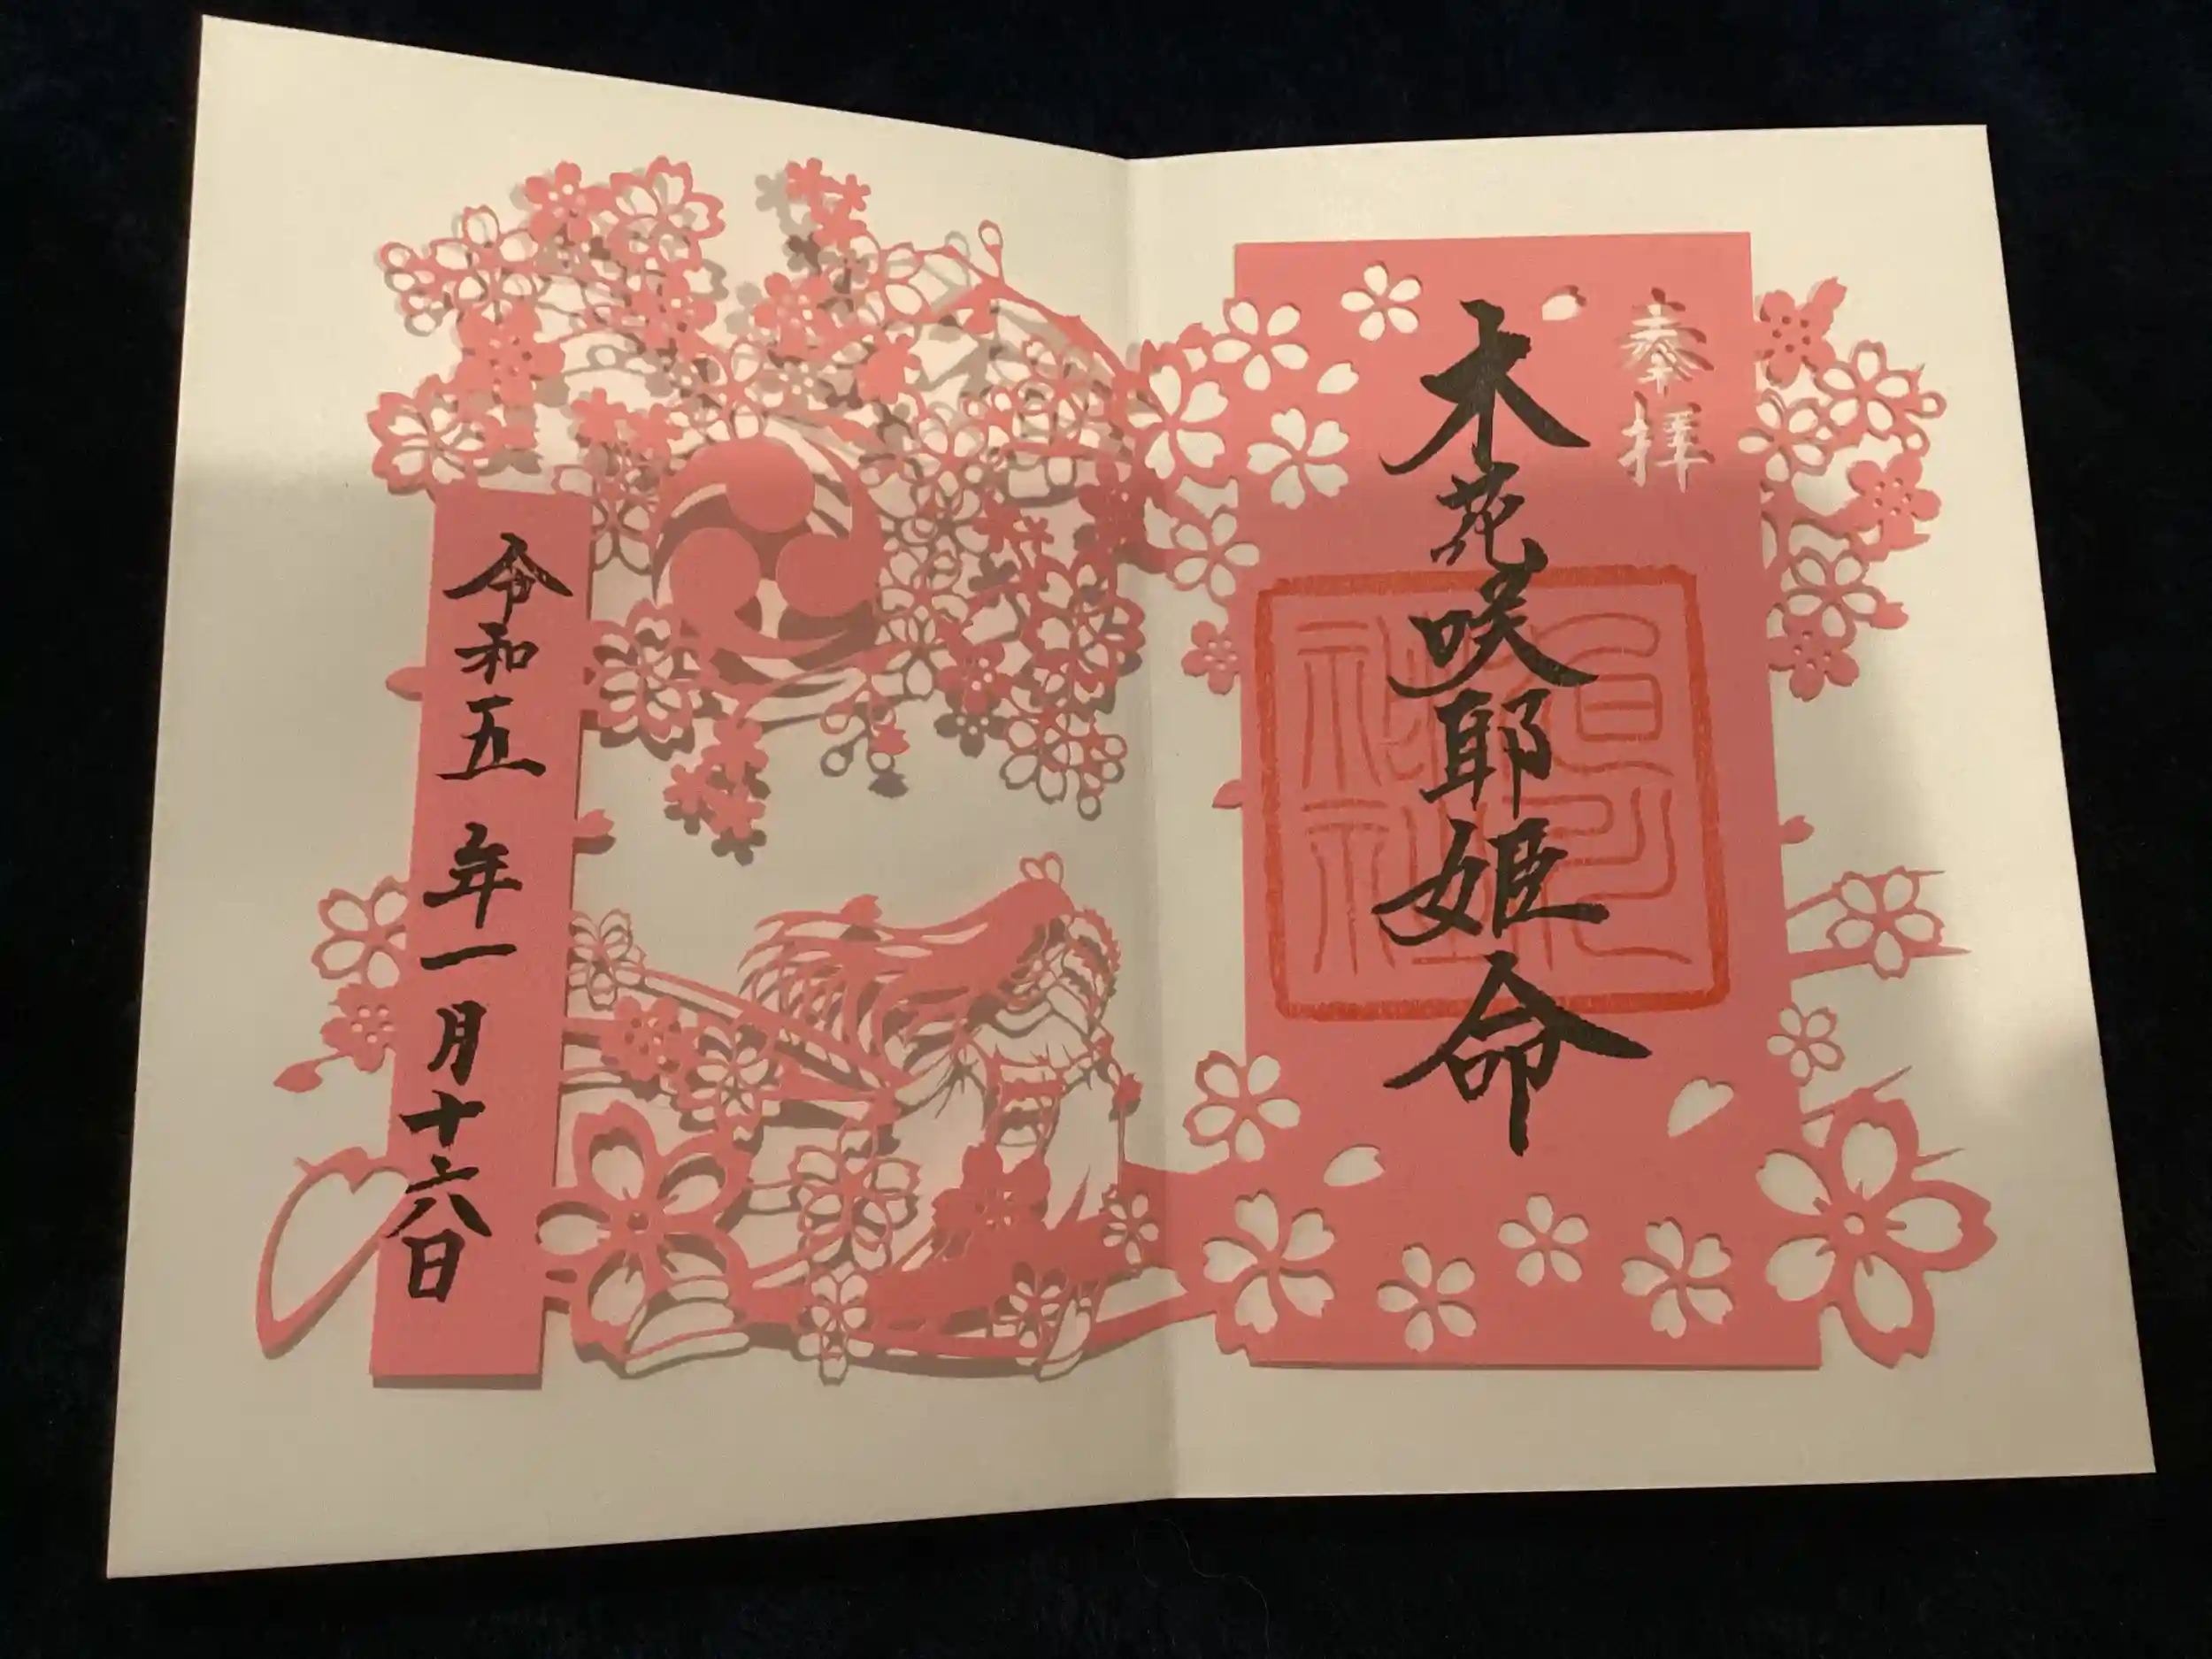 奉拝
木花咲耶姫命
令和五年一月十六日